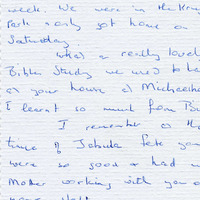 week. We were in the Kru
Park & only got home on
Saturday.
What a really lovel
Bible Study we used to ha
at your house at Michaelho
I learnt so much from Bi
I remember at th
time of Jabula Fete you
were so good & had m
Mother working with you o